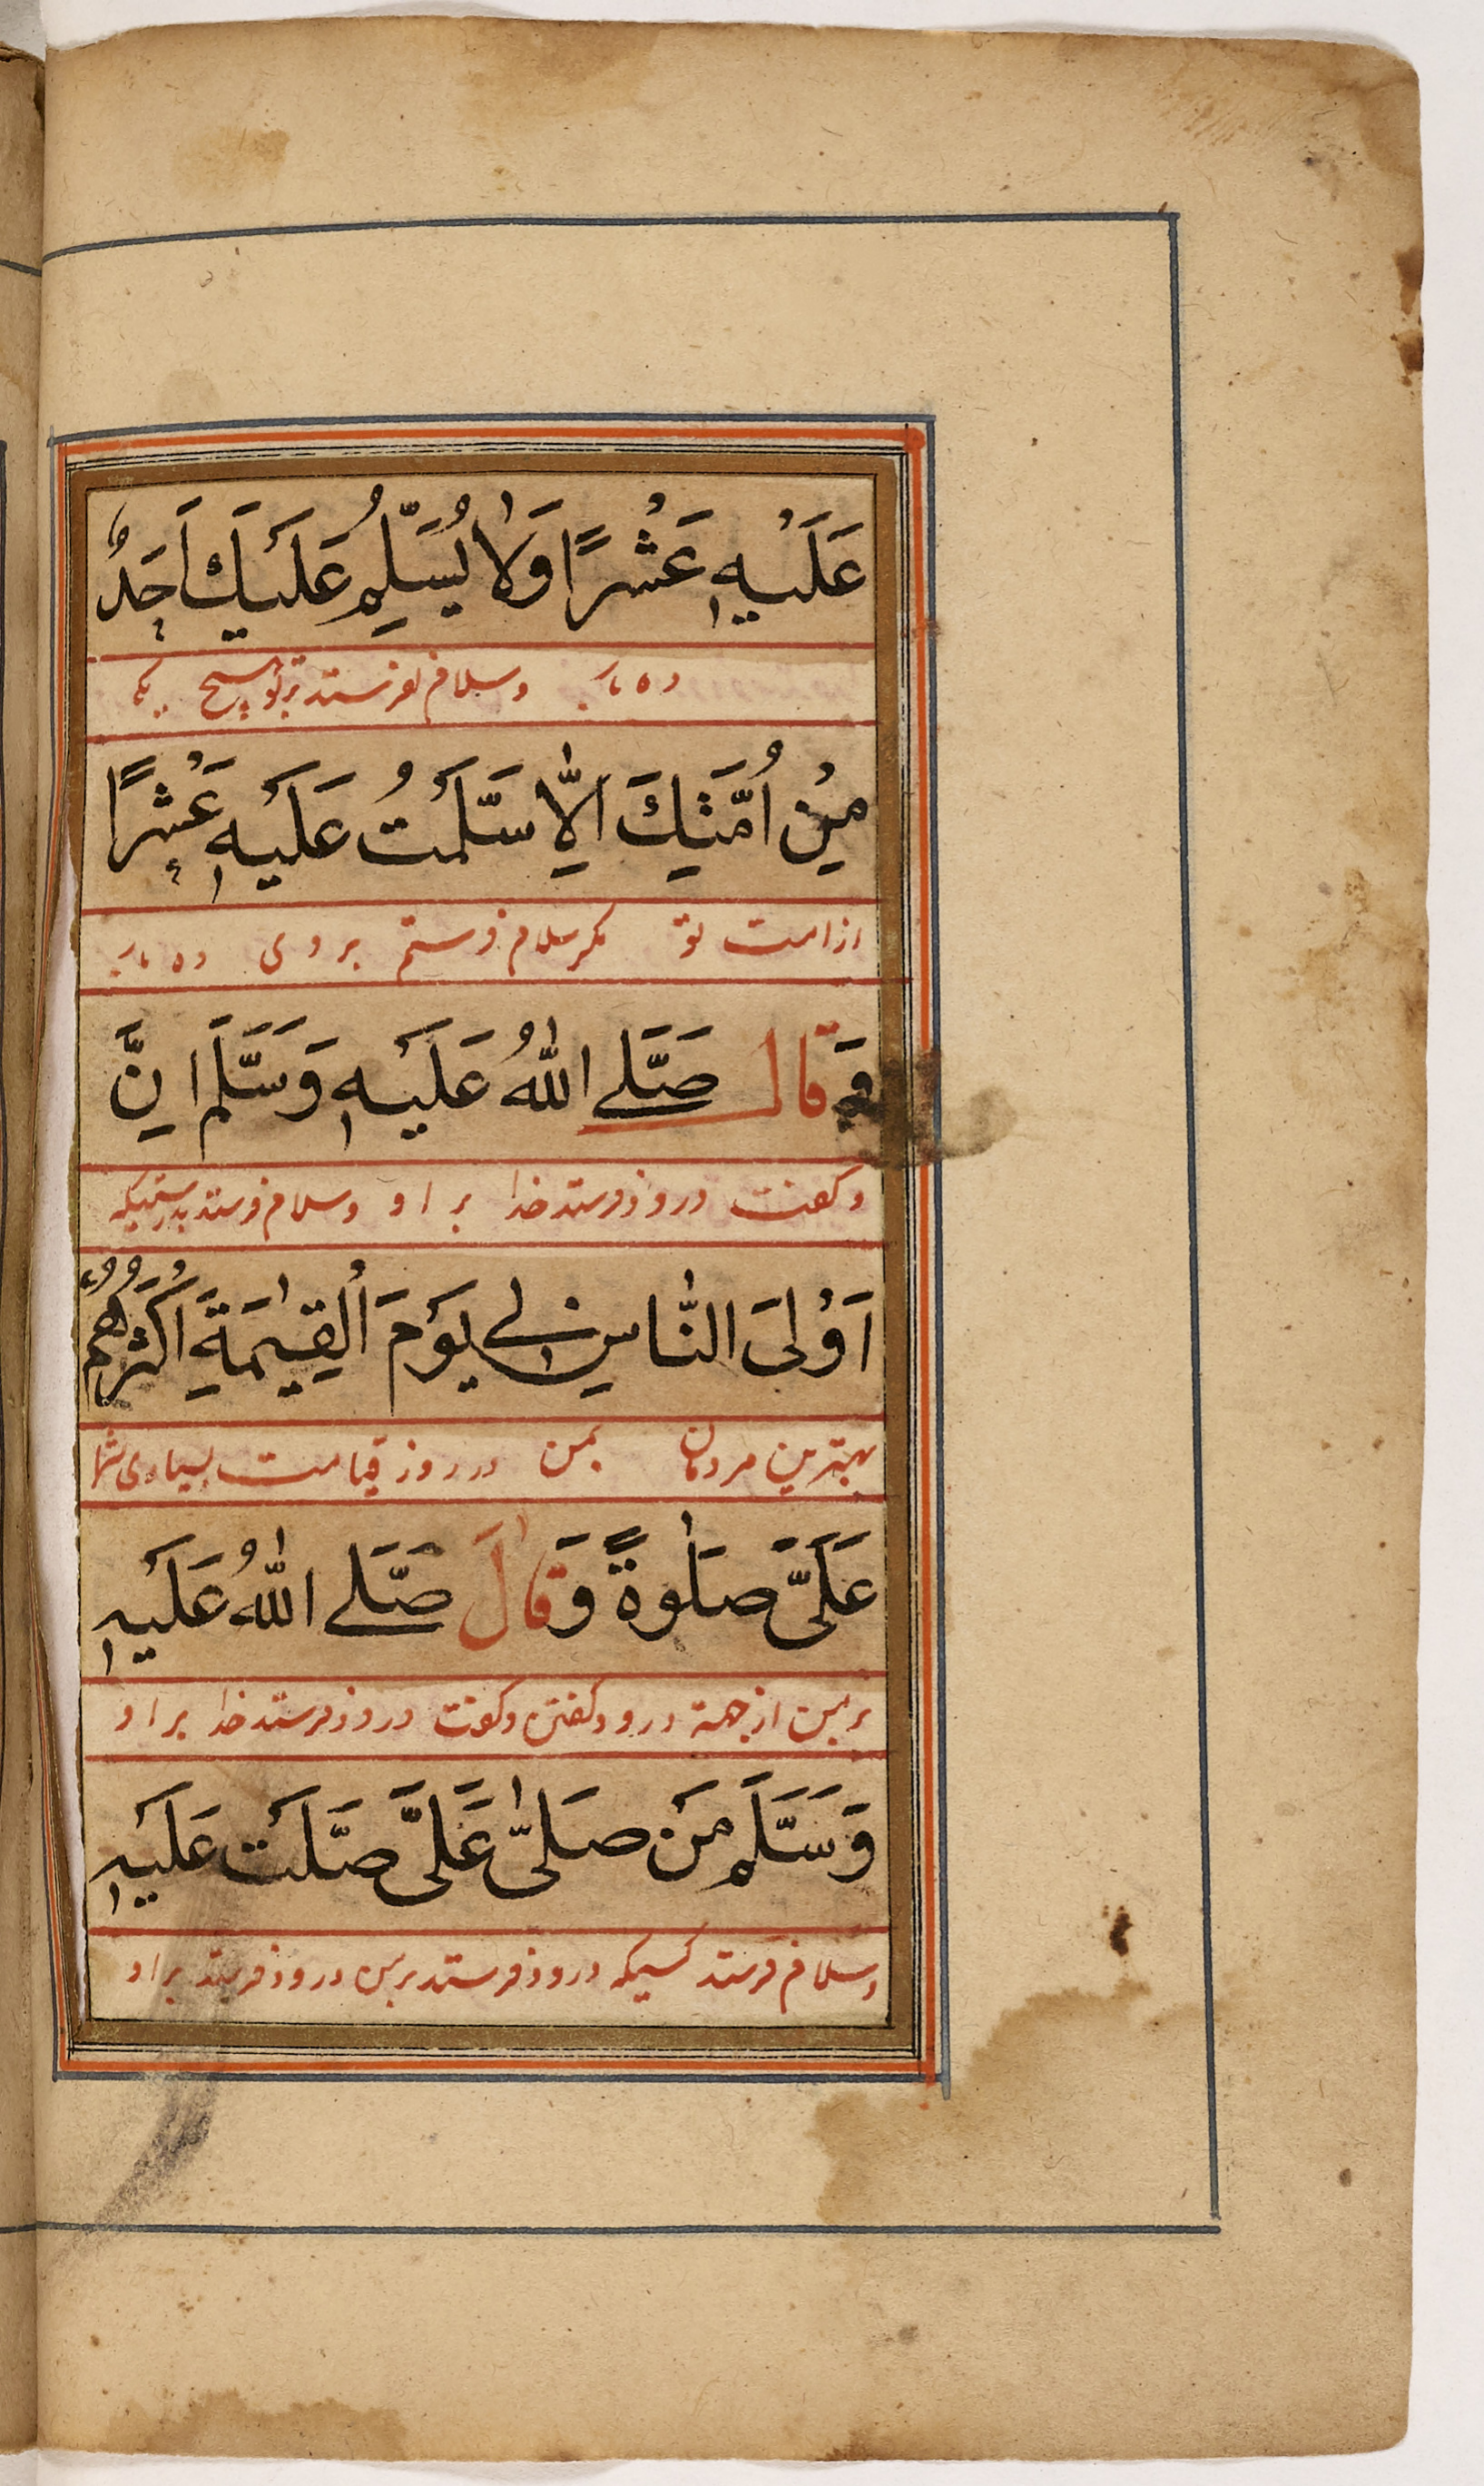 عَلَيْهِ عَشْرًا وَلَا يُسَلِّمُ عَلَيْكَ اَحَدٌ
ده بار وسلام نفرستد بر تو هیچ یک
مِنْ اُمَّتِكَ اِلَّا سَلَّمْتُ عَلَيْهِ عَشْرًا
از امت تو مکر سلام فرستم بر وی ده بار
وَقَالَ صَلَّے اللّٰهُ عَلَيْهِ وَسَلَّمَ اِنَّ
وکفت درود فرستد خدا بر او وسلام فرستد بدرستیکه
اَوْلَى النَّاسِ بِے يَوْمَ الْقِيٰمَةِ اَكْثَرُهُمْ
بهترین مردمان بمن در روز قیامت بسیاری شما
عَلَيَّ صَلٰوةً وَقَالَ صَلَّے اللّٰهُ عَلَيْهِ
بر من از جهة درود کفتن وکفت درود فرستد خدا بر او
وَسَلَّمَ مَنْ صَلّٰى عَلَيَّ صَلَّتْ عَلَيْهِ
وسلام فرستد کسیکه درود فرستد بر من درود فرستد بر او